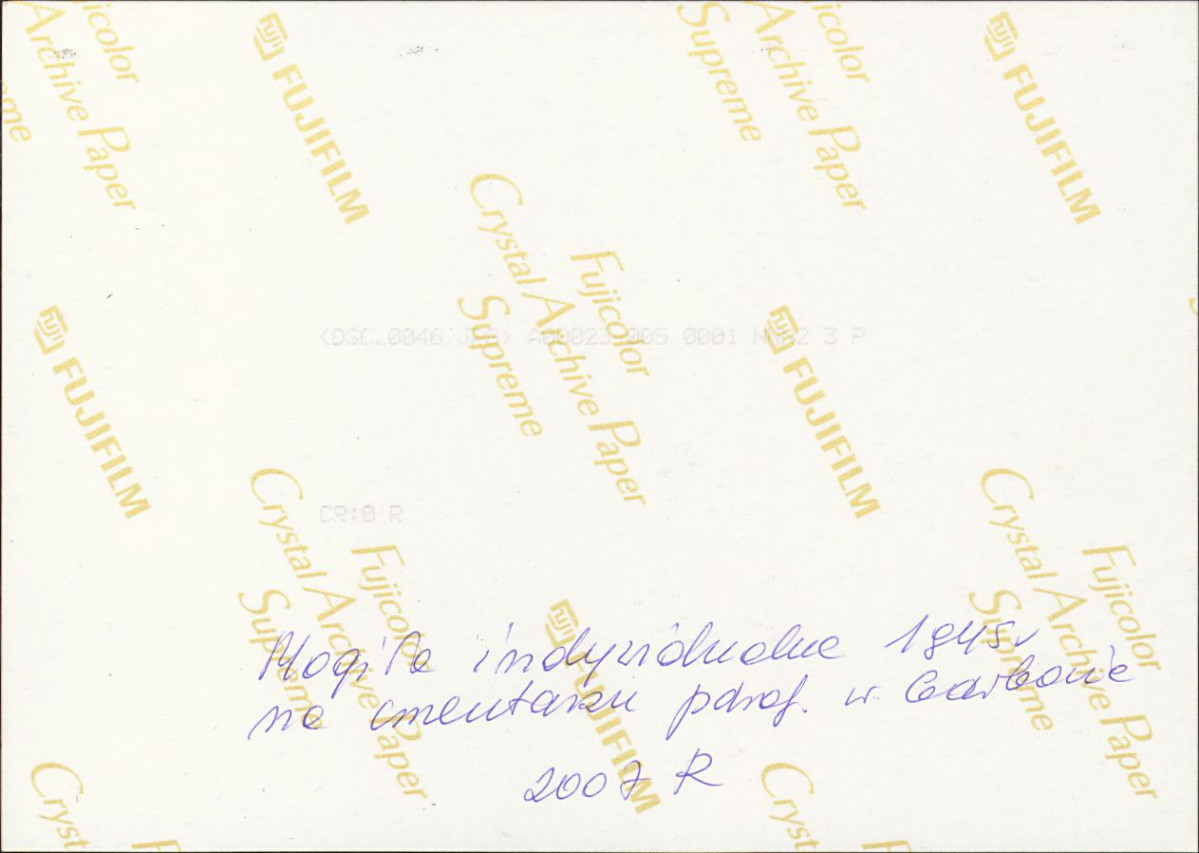 Fujicolor
Archive Paper
FUJIFILM
Supreme
Fujicolor
Archive Paper
FUJIFILM
Crystal Archive Paper
Fujicolor
Supreme
<DSC_0046.JPG> A00023 005 0001 NNN2 3 P
FUJIFILM
FUJIFILM
CR:0 R
Crystal Archive Paper
Fujicolor
Supreme
FUJIFILM
Crystal Archive Paper
Fujicolor
Supreme
Mogiła indywidualna 1945r
na cmentarzu paraf. w Garbowie
2007 R